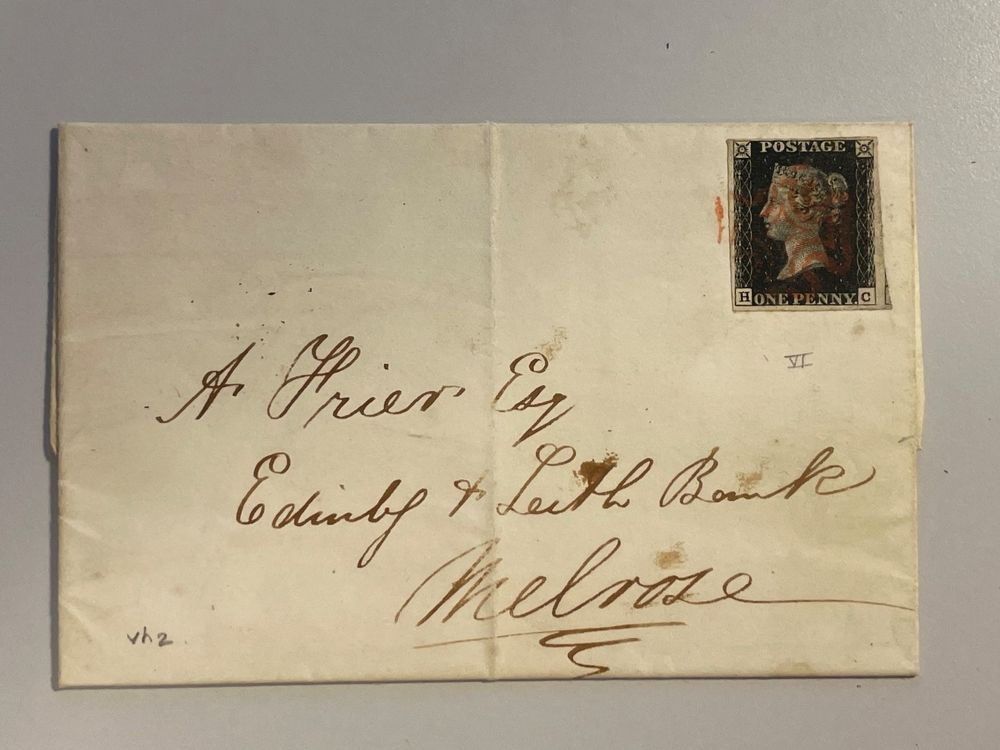 POSTAGE
H ONE PENNY. C
VI
A. Frier. Esq
Edinbg & Leith Bank
Melrose
vh2.